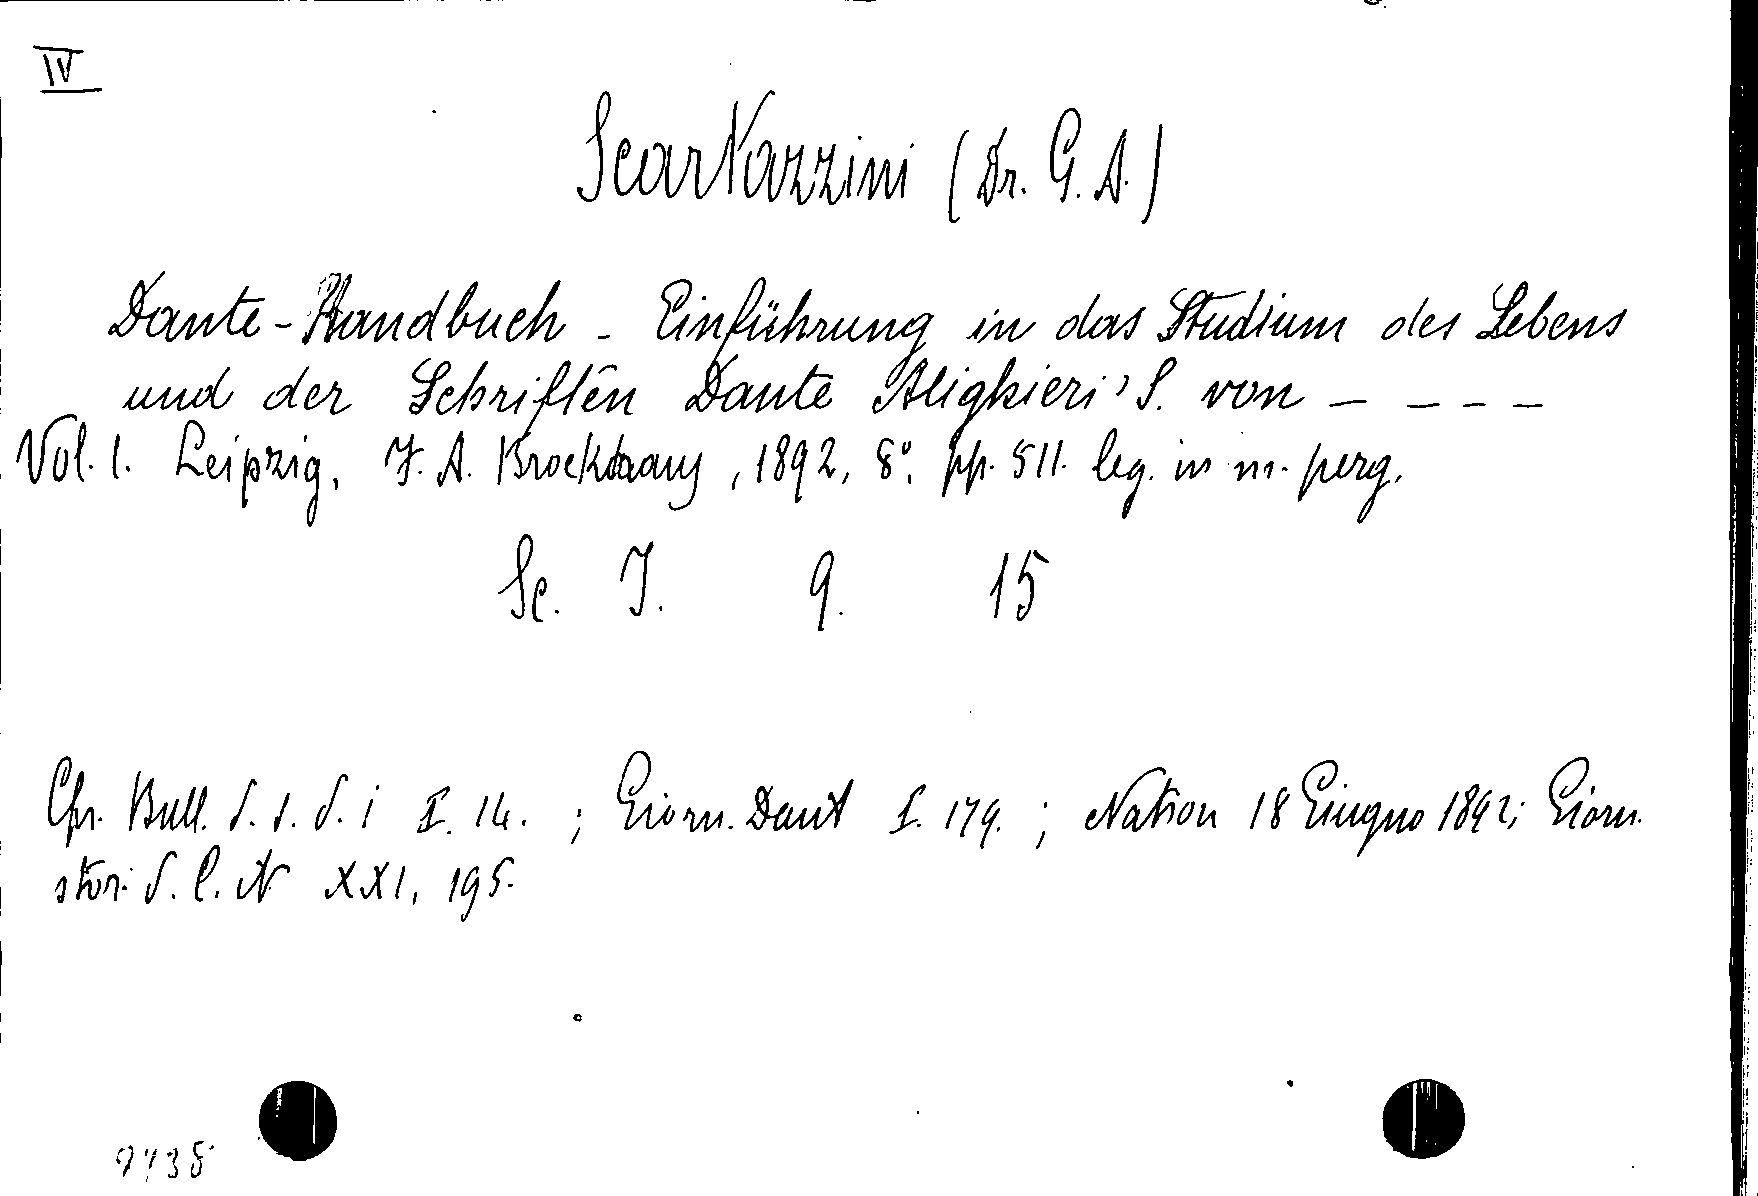 IV
Scartazzini (Dr. G. A.)
Dante-Handbuch - Einführung in das Studium des Lebens
und der Schriften Dante Alighieri's. von - - - -
Vol. 1. Leipzig, F. A. Brockhaus, 1892, 8°. pp. 511. leg. in m. perg.
Sc. I. 9. 15
Cfr. Bull. d. s. d. i I. 14. ; Giorn. Dant I. 179. ; Nation 18 Giugno 1892; Giorn.
stor. d. l. it XXI, 195.